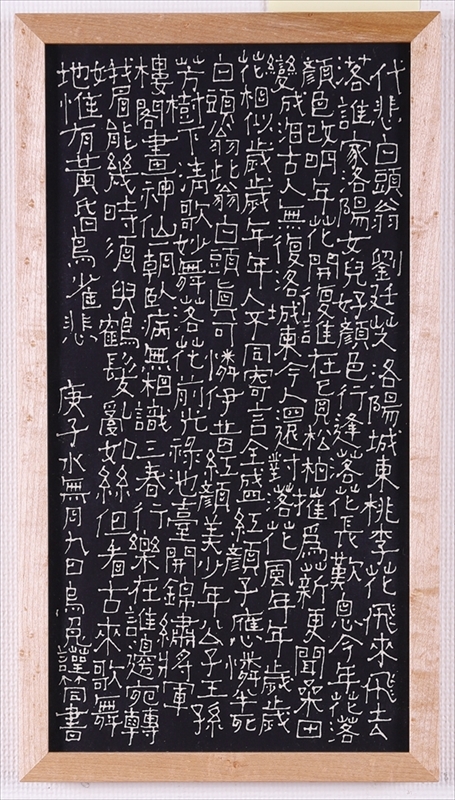 代悲白頭翁 劉廷芝 洛陽城東桃李花飛來飛去
落誰家洛陽女兒好顔色行逢落花長歎息今年花落
顔色改明年花開復誰在已見松柏摧爲薪更聞桑田
變成海古人無復洛城東今人還對落花風年年歲歲
花相似歲歲年年人不同寄言全盛紅顔子應憐半死
白頭翁此翁白頭眞可憐伊昔紅顔美少年公子王孫
芳樹下清歌妙舞落花前光祿池臺開錦繡將軍
樓閣畫神仙一朝臥病無相識三春行樂在誰邊宛轉
娥眉能幾時須臾鶴髮亂如絲但看古來歌舞
地惟有黃昏鳥雀悲 庚子水無月九日 書